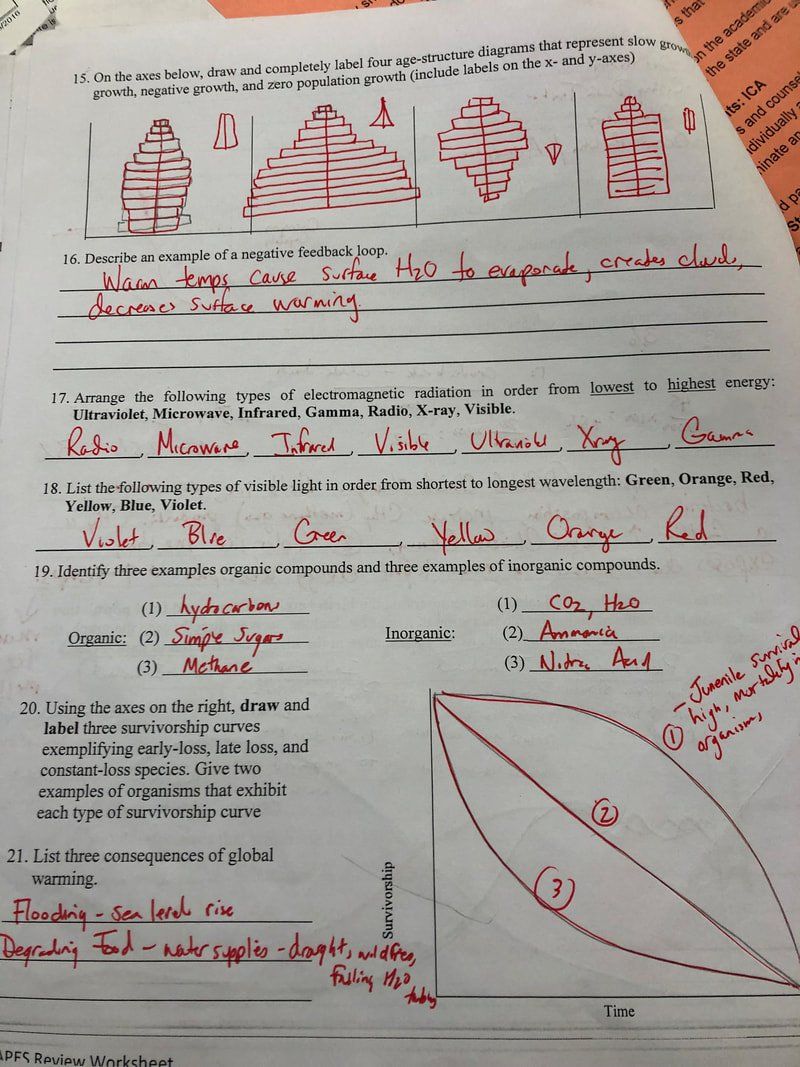 /2016
s that
on the academic
the state and are us
its: ICA
s and counse
dividually a
ninate an
d pa
St
15. On the axes below, draw and completely label four age-structure diagrams that represent slow grow
growth, negative growth, and zero population growth (include labels on the x- and y-axes)
16. Describe an example of a negative feedback loop.
Warm temps cause surface H2O to evaporate, creates clouds,
decreases surface warming.
17. Arrange the following types of electromagnetic radiation in order from lowest to highest energy:
Ultraviolet, Microwave, Infrared, Gamma, Radio, X-ray, Visible.
Radio, Microwave, Infrared, Visible, Ultraviolet, Xray, Gamma
18. List the following types of visible light in order from shortest to longest wavelength: Green, Orange, Red,
Yellow, Blue, Violet.
Violet, Blue, Green, Yellow, Orange, Red
19. Identify three examples organic compounds and three examples of inorganic compounds.
(1) hydrocarbons (1) CO2, H2O
Organic: (2) Simple Sugars Inorganic: (2) Ammonia
(3) Methane (3) Nitric Acid
20. Using the axes on the right, draw and
label three survivorship curves
exemplifying early-loss, late loss, and
constant-loss species. Give two
examples of organisms that exhibit
each type of survivorship curve
- Juvenile survival
① high, mortality in
organisms,
②
③
Survivorship
Time
21. List three consequences of global
warming.
Flooding - sea level rise
Degrading Food - water supplies - draught, wildfires,
falling H2O
tables
APES Review Worksheet